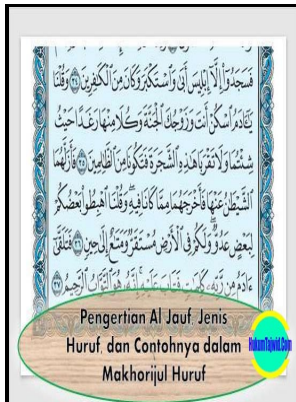 فَسَجَدُوٓا۟ إِلَّآ إِبْلِيسَ أَبَىٰ وَٱسْتَكْبَرَ وَكَانَ مِنَ ٱلْكَٰفِرِينَ ٣٤ وَقُلْنَا
يَٰٓـَٔادَمُ ٱسْكُنْ أَنتَ وَزَوْجُكَ ٱلْجَنَّةَ وَكُلَا مِنْهَا رَغَدًا حَيْثُ
شِئْتُمَا وَلَا تَقْرَبَا هَٰذِهِ ٱلشَّجَرَةَ فَتَكُونَا مِنَ ٱلظَّٰلِمِينَ ٣٥ فَأَزَلَّهُمَا
ٱلشَّيْطَٰنُ عَنْهَا فَأَخْرَجَهُمَا مِمَّا كَانَا فِيهِ وَقُلْنَا ٱهْبِطُوا۟ بَعْضُكُمْ
لِبَعْضٍ عَدُوٌّ وَلَكُمْ فِى ٱلْأَرْضِ مُسْتَقَرٌّ وَمَتَٰعٌ إِلَىٰ حِينٍ ٣٦ فَتَلَقَّىٰٓ
ءَادَمُ مِن رَّبِّهِۦ كَلِمَٰتٍ فَتَابَ عَلَيْهِ إِنَّهُۥ هُوَ ٱلتَّوَّابُ ٱلرَّحِيمُ ٣٧
Pengertian Al Jauf, Jenis
Huruf, dan Contohnya dalam
Makhorijul Huruf
HukumTajwid.Com